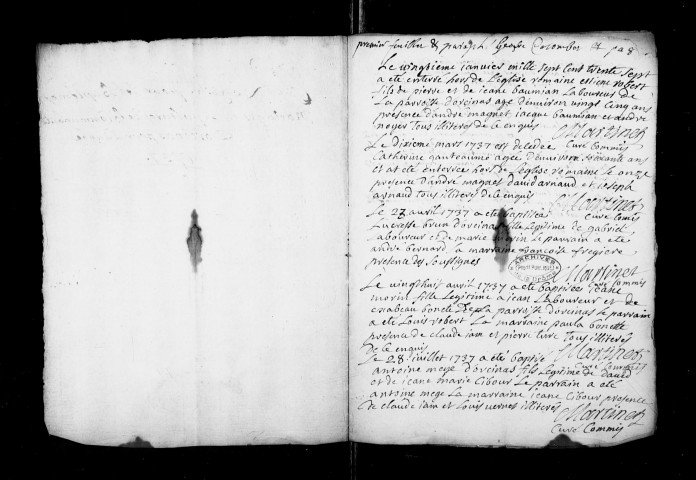 premier feuillet & paraphé
Le vingtieme janvier mille sept cent trente sept
a ete enterre hors de l'eglise romaine estiene robert
fils de pierre et de jeane baumian Laboureur de
La parroisse dorcinas age denviron vingt cinq ans
presence dandre magnet jacque baumian et andre
noyer tous illiteres de le enquis Martinet
Curé Commis
Le dixieme mars 1737 est decedee
Catherine ganteaume agee denviron soixante ans
et at eté enterrees hors de leglise romaine le onze
presence d'andré magnet david arnaud et joseph
arnaud tous illiteres de le enquis Martinet
Curé Comis
Le 27 avril 1737 a eté baptisée
Lucresse brun dorcinas fille Legitime de gabriel
Laboureur et de marie morin Le parrain a eté
bernard La marraine francoise fregiere
presence des soussignes
Martinet
Curé Commis
Le vingthuit avril 1737 a ete baptisee jeane
morin fille Legitime a jean Laboureur et de
isabeau bonet de La parroisse dorcinas Le parrain
a eté Louis robert La marraine paula bonette
presence de claude jain et pierre ture tous illiteres
de le enquis Martinet
Curé Commis
Le 28 juillet 1737 a eté baptisé
antoine mege dorcinas fils Legitime de david
et de jeane marie Cibour Le parrain a eté
antoine mege La marraine jeane Cibour presence
de claude jain et Louis vernet illiteres
Martinet
Curé Commis
ARCHIVES
DE LA DRÔME